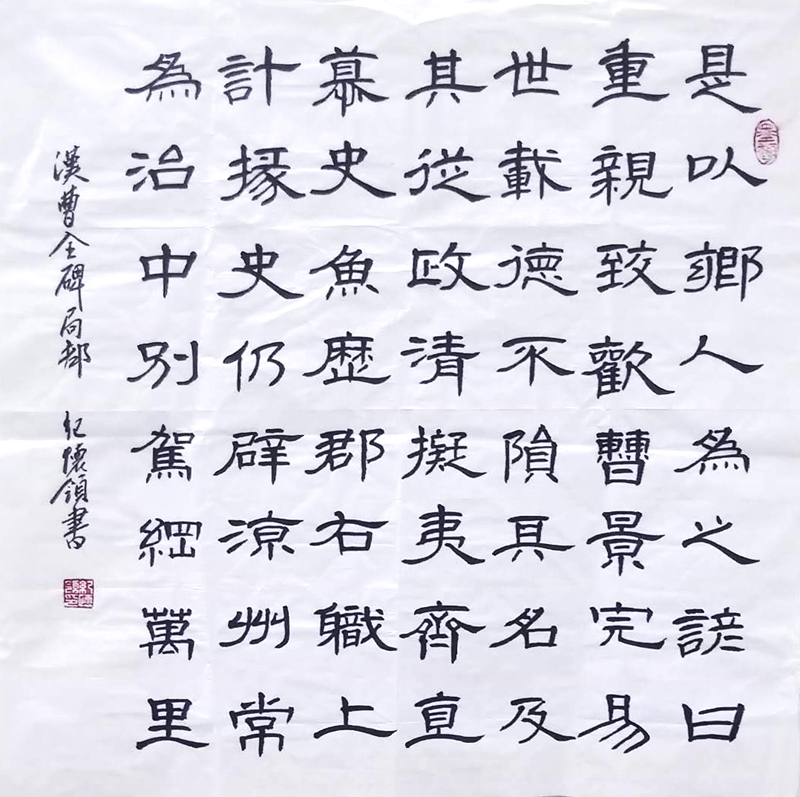 是以鄉人為之諺曰
重親致歡曹景完易
世載德不隕其名及
其從政清擬夷齊直
慕史魚歷郡右職上
計掾史仍辟涼州常
為治中別駕綱萬里
漢曹全碑局部 紀懷領書